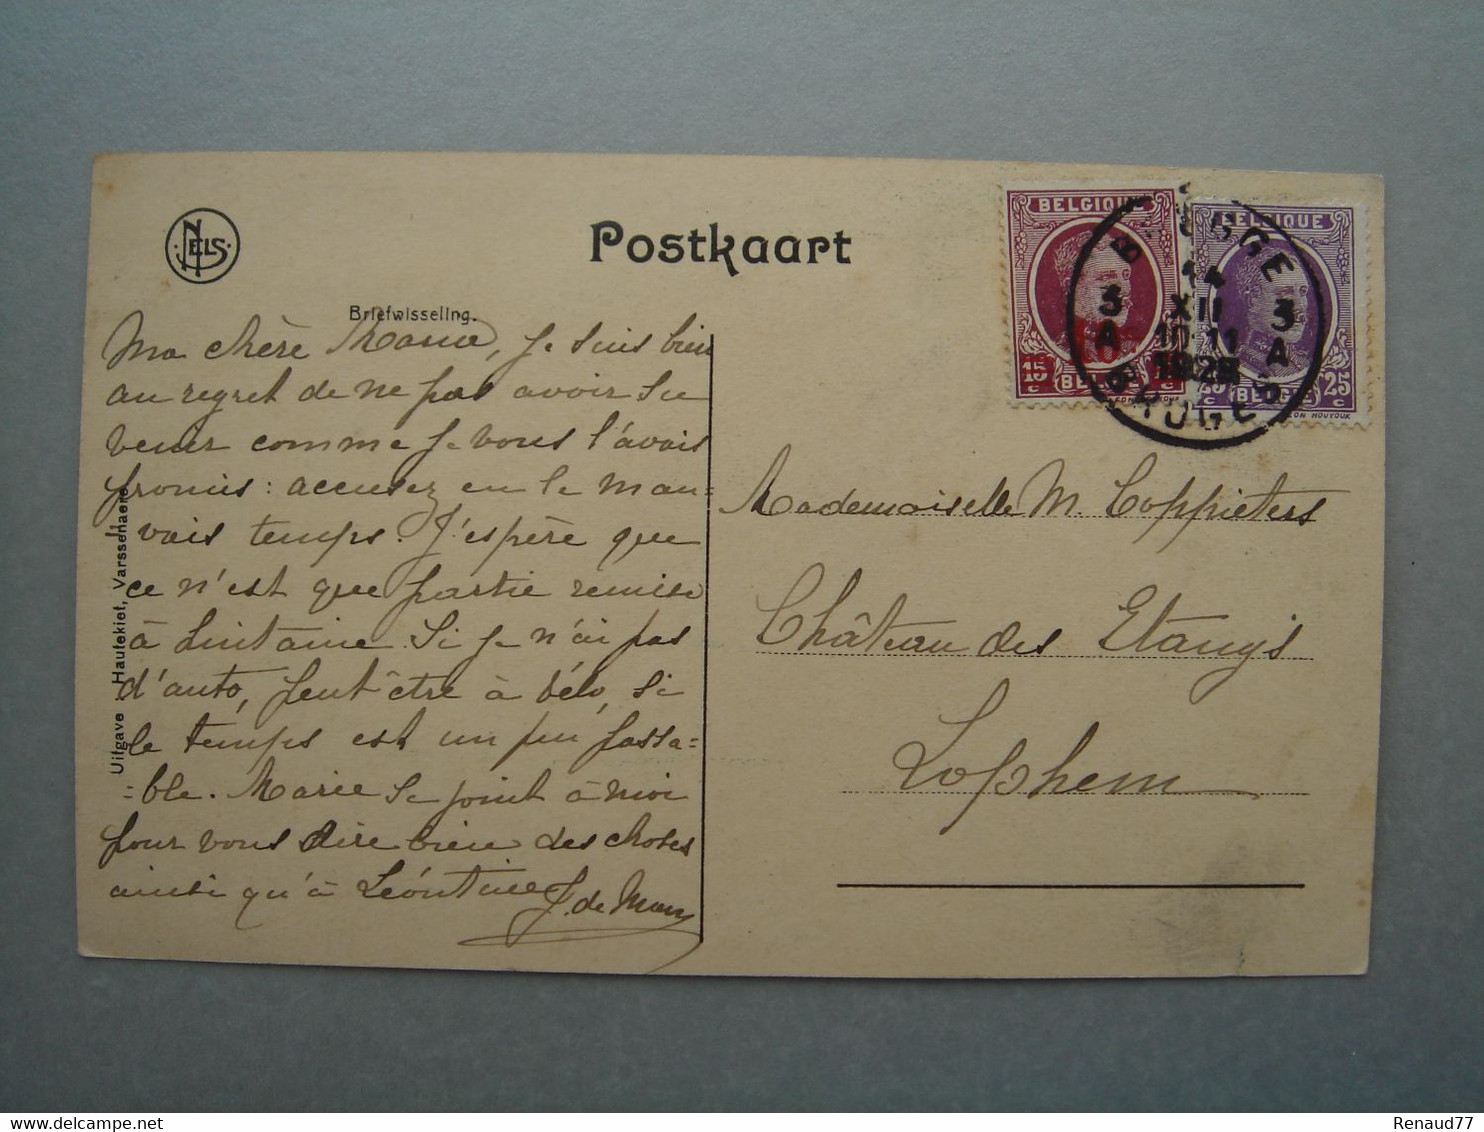 NELS
Postkaart
Briefwisseling.
Ma chère Marie, je suis bien
au regret de ne pas avoir su
venir comme je vous l'avais
promis : accusez en le mau=
vais temps. J'espère que
ce n'est que partie remise
à huitaine. Si je n'ai pas
d'auto, peut être à vélo, si
le temps est un peu passa=
=ble. Marie se joint à moi
pour vous dire bien des choses
ainsi qu'à Léontine
J. de Man
Uitgave : Hautekiet, Varssenaere
BELGIQUE
15 c
BELGIQUE
25 c
(BELGIË)
BRUGGE
3 A
XII
10-11
BRUGES
3 A
Mademoiselle M. Coppieters
Château des Etangs
Lophem
Renaud77